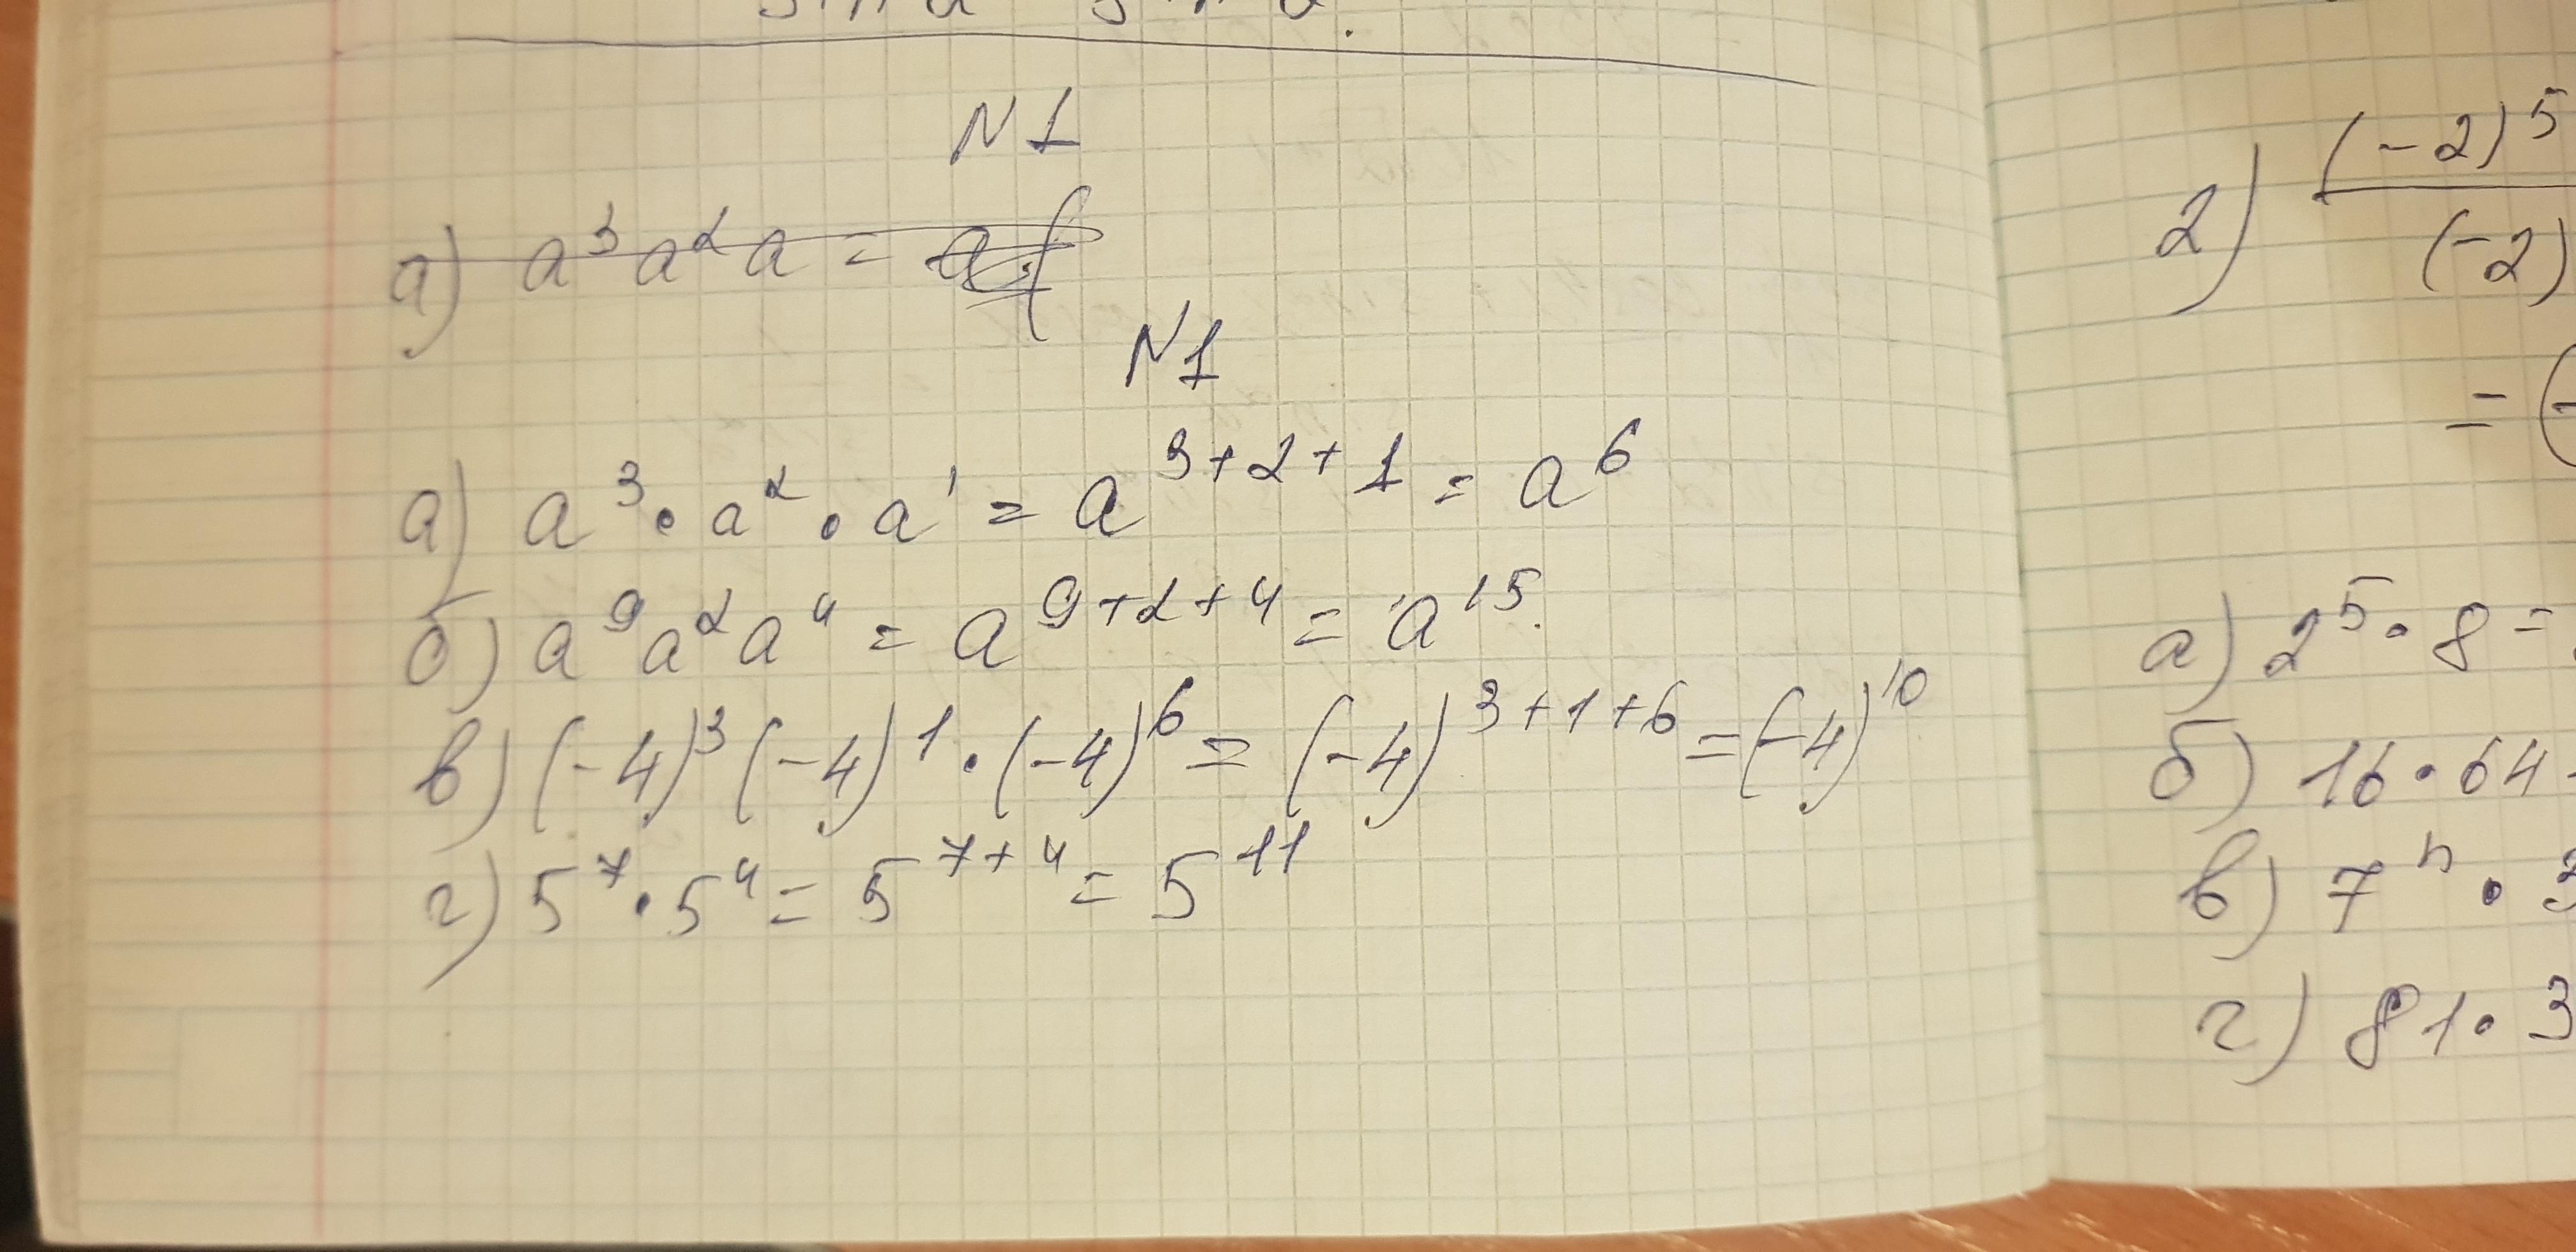 N1
а) a³a²a =
N1
а) a³ · a² · a¹ = a³⁺²⁺¹ = a⁶
б) a⁹a²a⁴ = a⁹⁺²⁺⁴ = a¹⁵.
в) (-4)³(-4)¹ · (-4)⁶ = (-4)³⁺¹⁺⁶ = (-4)¹⁰
г) 5⁷ · 5⁴ = 5⁷⁺⁴ = 5¹¹
2) (-2)⁵
(-2)
= (-
а) 2⁵ · 8 =
б) 16 · 64
в) 7ⁿ · 3
г) 81 · 3